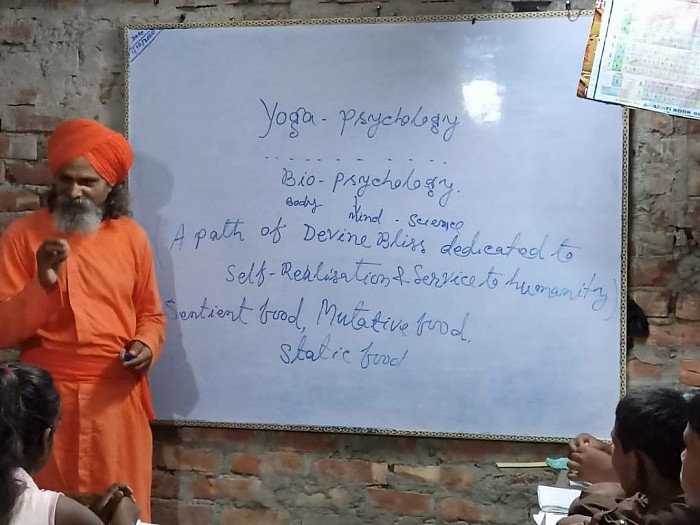 Yoga - Psychology
Bio - Psychology.
Body
Mind - Science
(A path of Devine Bliss dedicated to
Self-Realisation & Service to humanity)
Sentient food, Mutative food,
Static food